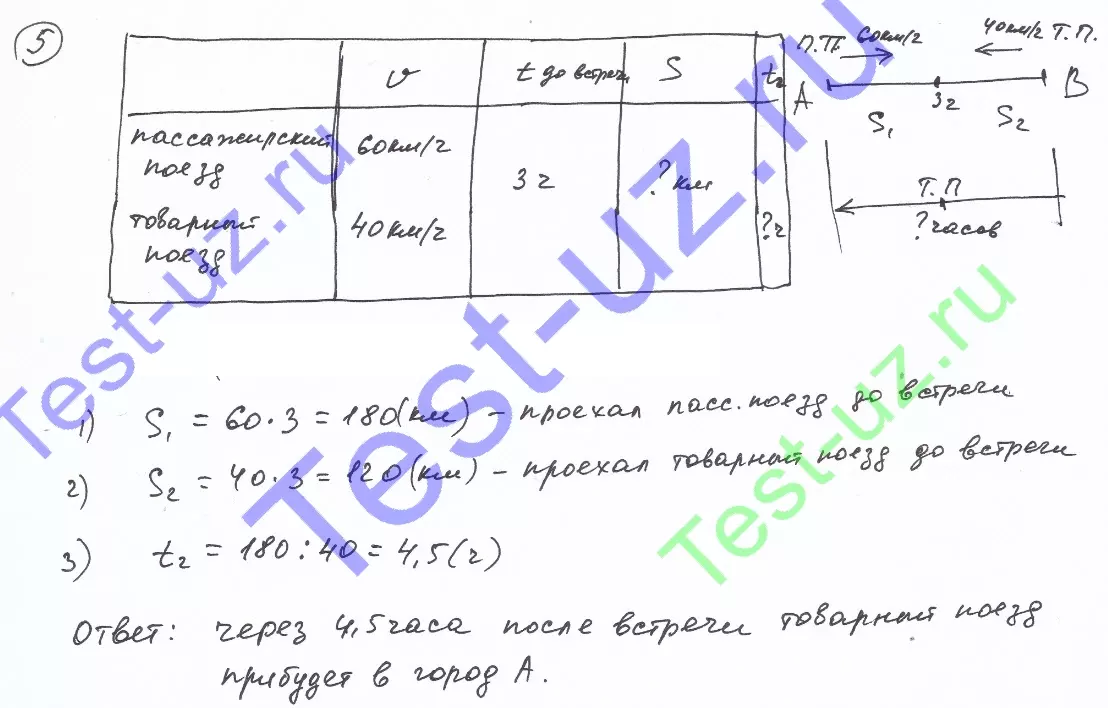 5
υ t до встречи S t₂
пассажирский поезд 60км/ч
3 ч ? км
товарный поезд 40км/ч ? ч
П.П. 60км/ч 40км/ч Т.П.
A B
S₁ 3ч S₂
Т.П
? часов
1) S₁ = 60·3 = 180(км) – проехал пасс. поезд до встречи
2) S₂ = 40·3 = 120(км) – проехал товарный поезд до встречи
3) t₂ = 180 : 40 = 4,5(ч)
Ответ: через 4,5 часа после встречи товарный поезд
прибудет в город А.
Test-uz.ru
Test-uz.ru
Test-uz.ru